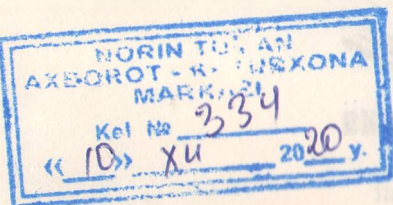 NORIN TUMAN
AXBOROT - KUTUBXONA
MARKAZI
Kel № 334
«10» XII 2020 y.